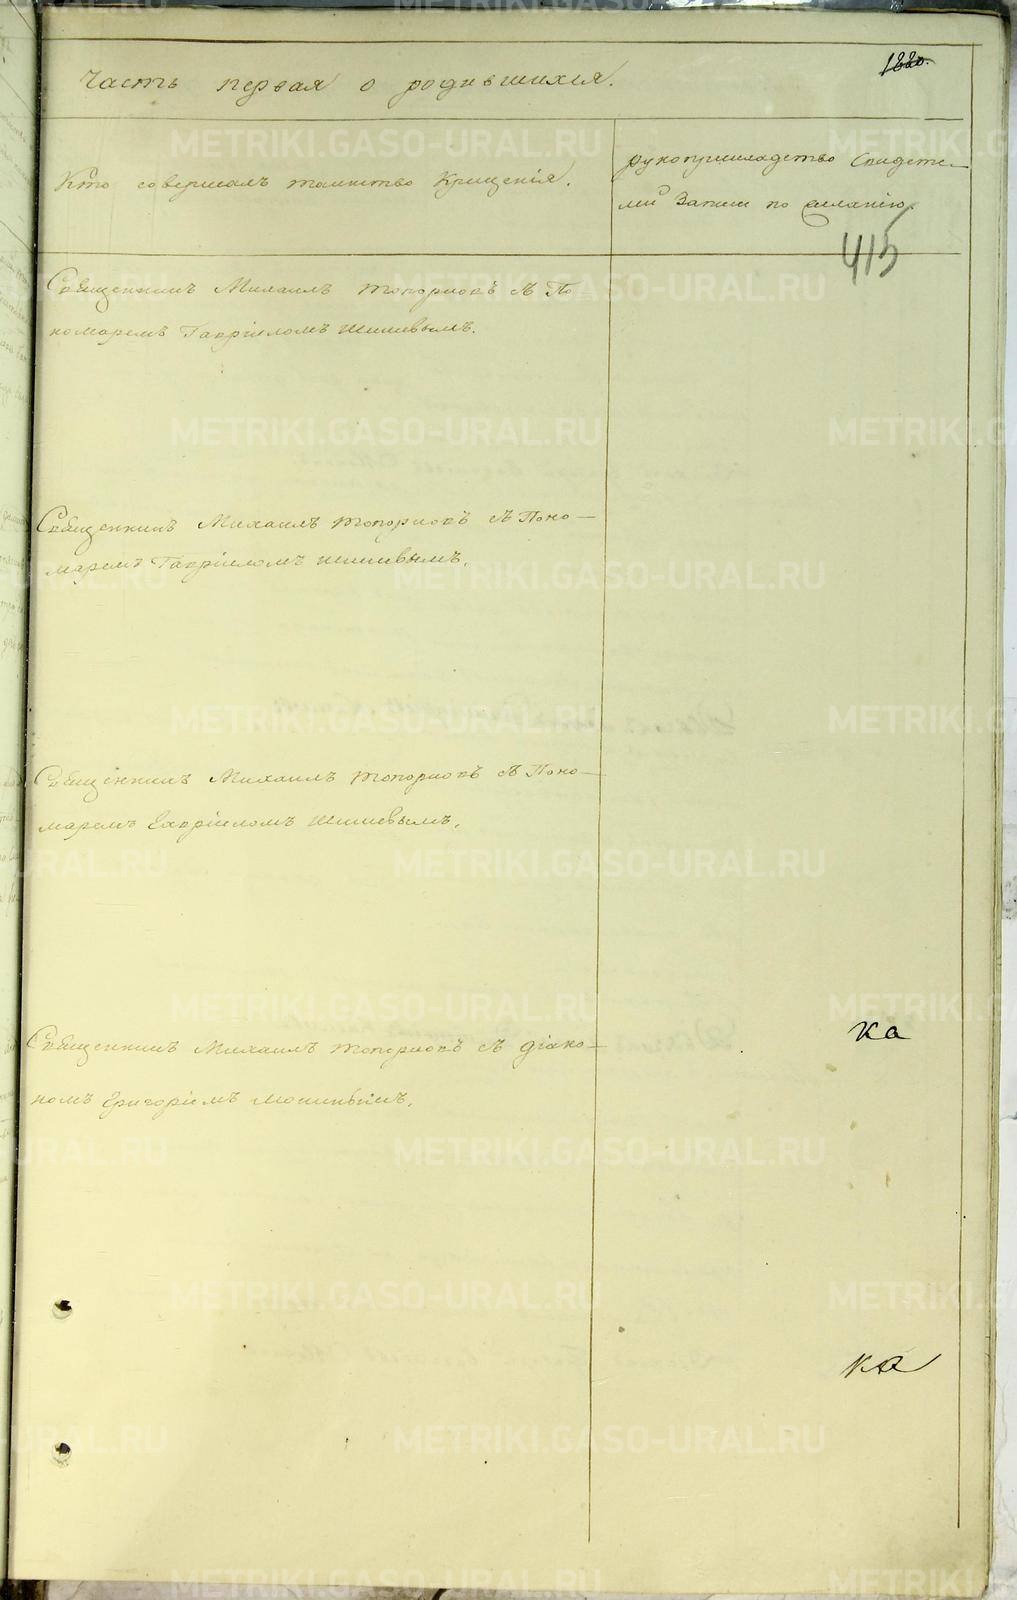 Часть первая о родившихся.
1220.
Кто совершалъ таинство Крещенія.
рукоприкладство Свидете-
лей Записи по желанію.
415
Священникъ Михаилъ Топорковъ съ По
номаремъ Гавріиломъ Шишевымъ.
Священникъ Михаилъ Топорковъ съ Поно-
маремъ Гавріиломъ Шишевымъ.
Священникъ Михаилъ Топорковъ съ Поно-
маремъ Гавріиломъ Шишевымъ.
Священникъ Михаилъ Топорковъ съ діако-
номъ Григоріемъ
ка
ка
METRIKI.GASO-URAL.RU